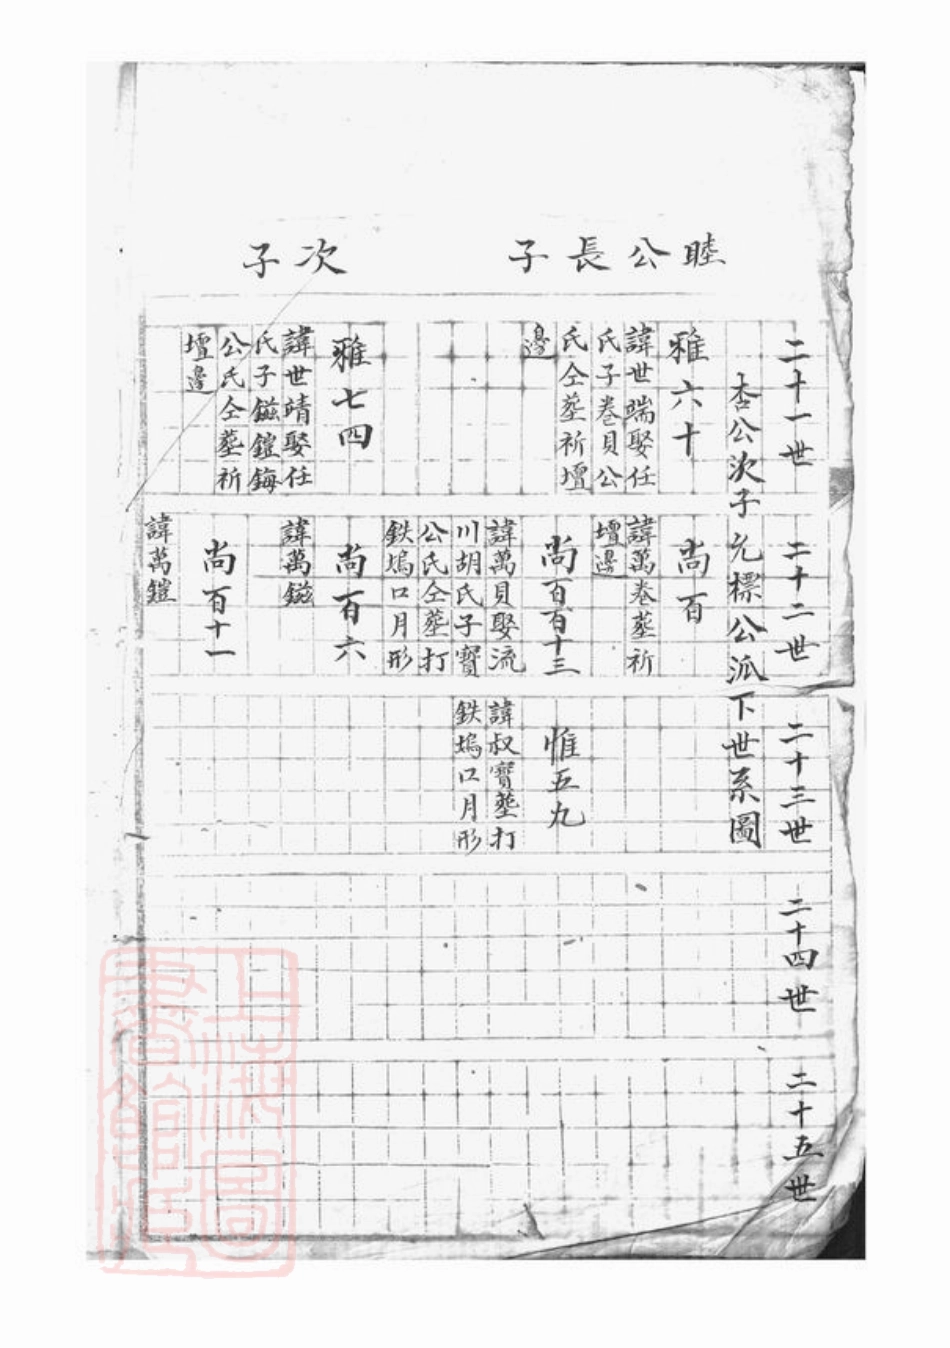 睦公長子
次子
二十一世
二十二世
二十三世
二十四世
二十五世
杏公次子允標公派下世系圖
雅六十
諱世端娶任
氏子卷貝公
氏仝塟祈壇
邊
雅七四
諱世靖娶任
氏子鎡鎧鋂
公氏仝塟祈
壇邊
尚百
諱萬卷塟祈
壇邊
尚百百十三
諱萬貝娶流
川胡氏子寶
公氏仝塟打
鉄塢口月形
尚百六
諱萬鎡
尚百十一
諱萬鎧
惟五九
諱叔寶塟打
鉄塢口月形
上海圖
書館藏